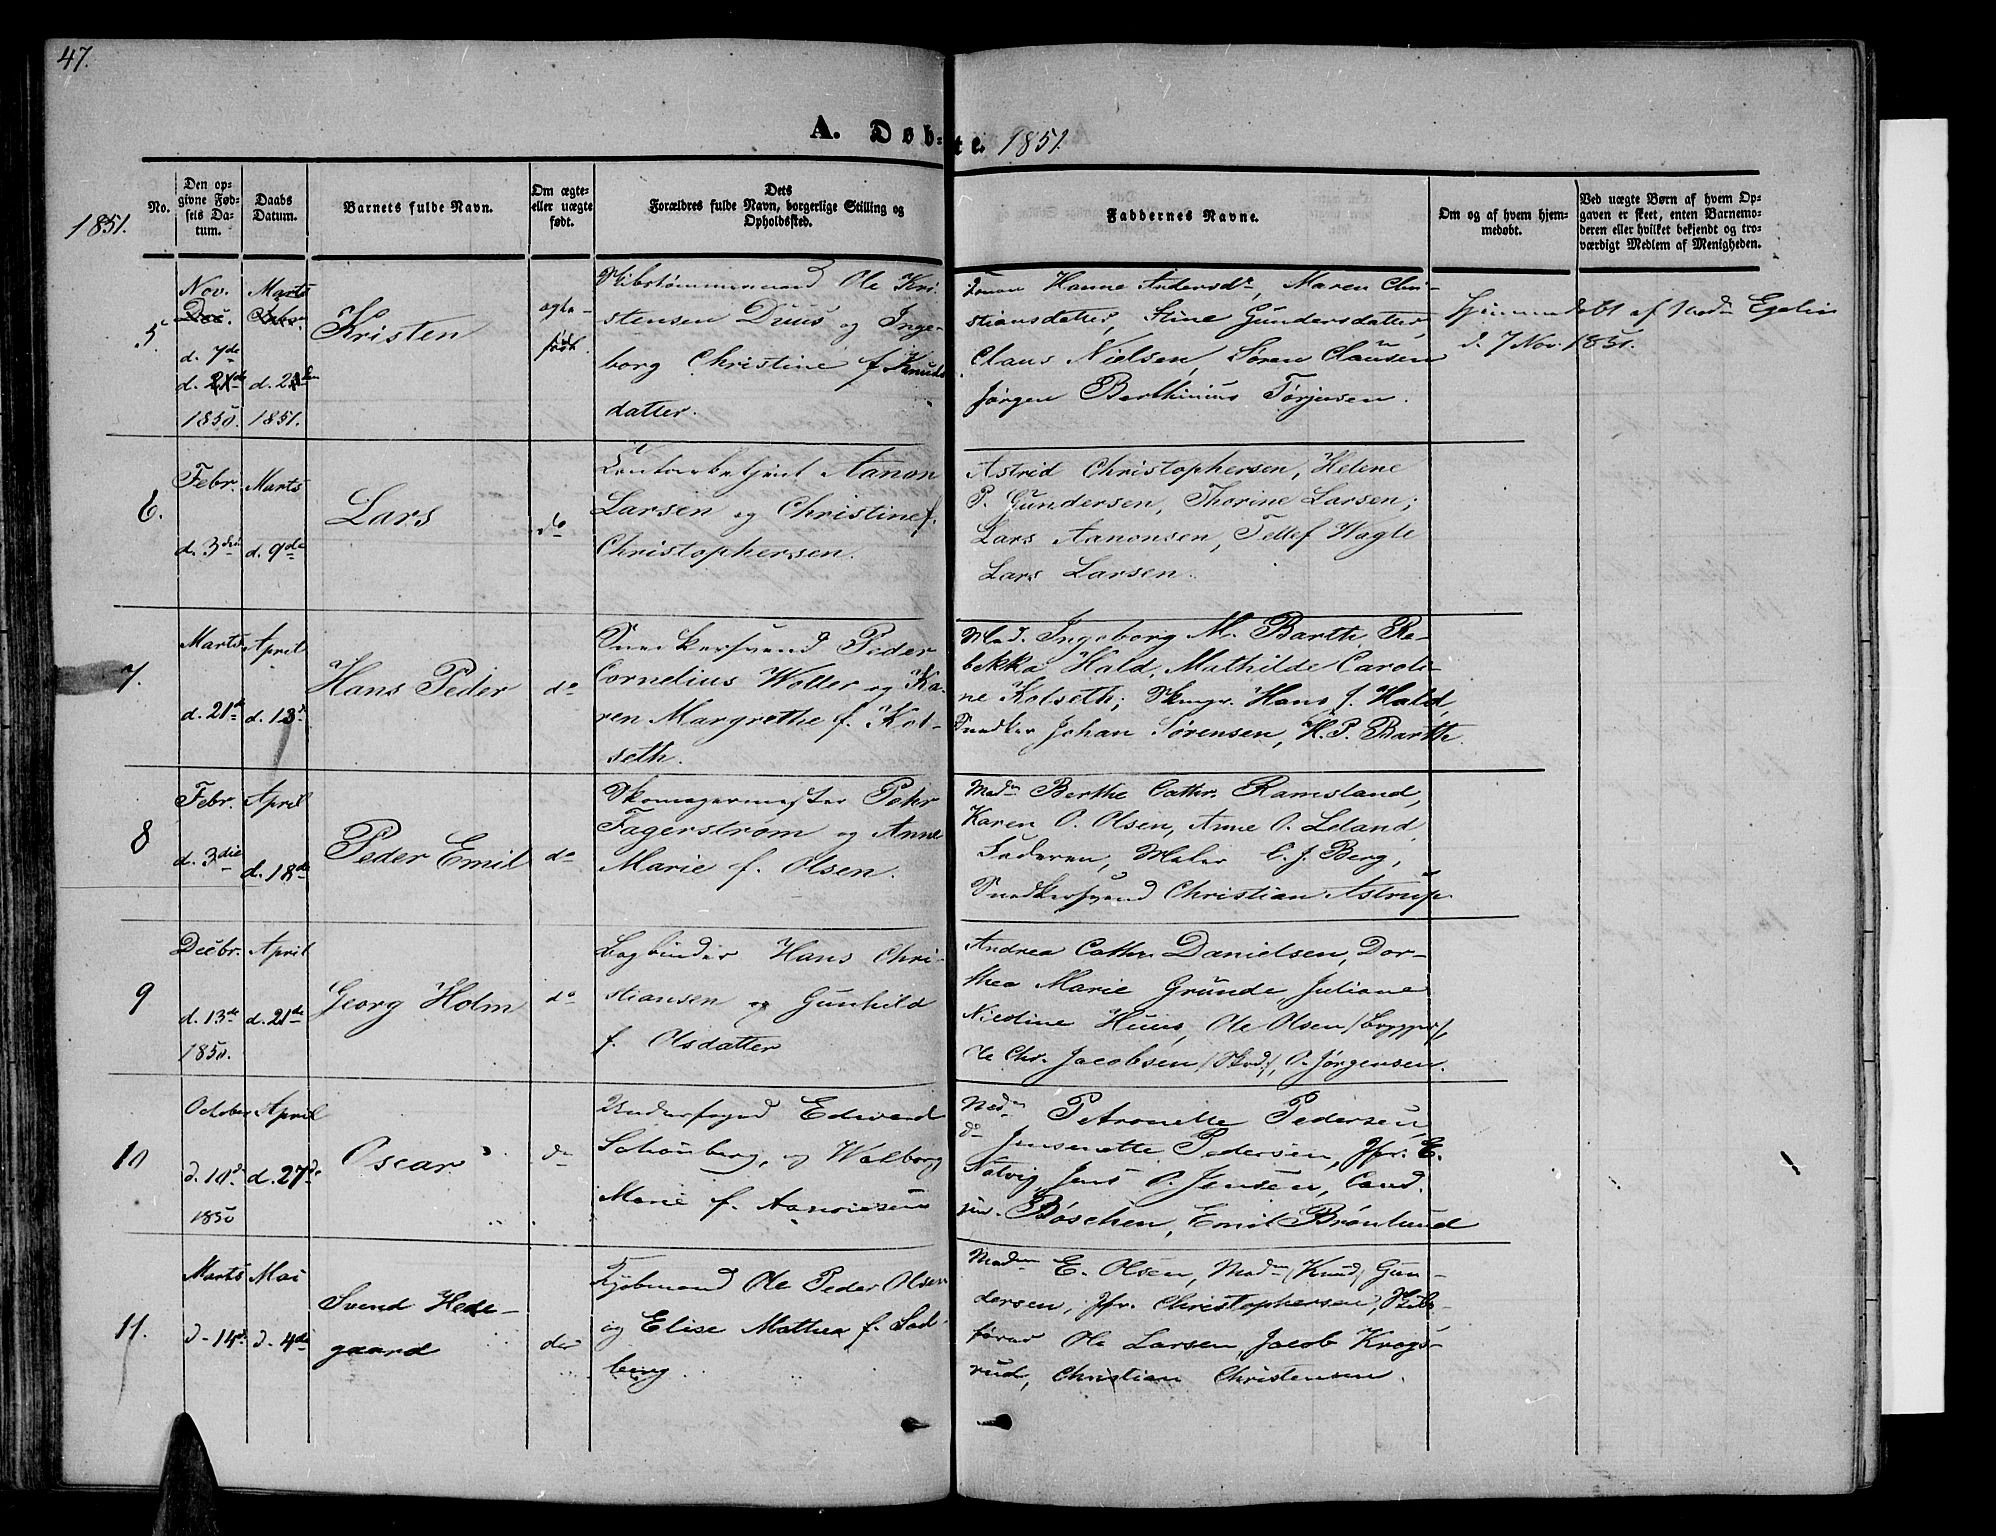 47.
A. Døb-te. 1851.
1851.
No.
Den op-
givne Fød-
sels Da-
tum.
Daabs
Datum.
Barnets fulde Navn.
Om ægte-
eller uægte
født.
Dets
Forældres fulde Navn, borgerlige Stilling og
Opholdssted.
Faddernes Navne.
Om og af hvem hjem-
medøbt.
Ved uægte Børn af hvem Op-
gaven er skeet, enten Barnemo-
deren eller hvilket bekjendt og tro-
værdigt Medlem af Menigheden.
5
Nov.
d. 7de
1850.
Marts
1851.
Kristen
ægte-
født.
Skibstømmermand Ole Kri-
stensen Duus og Inge-
borg Christine f. Knuds
datter.
Hanne Andersdr, Maren Chri-
stiansdatter, Stine Gundersdatter,
Claus Nielsen, Søren Clausen
Jørgen Berthinius Tørjusen.
Hjemmedøbt af Madm
d. 7 Nov. 1851.
6.
Febr.
d. 3die
Marts
d. 9de
Lars
do
Aanon
Larsen og Christine f.
Christophersen.
Astrid Christophersen, Helene
P. Gundersen, Thorine Larsen;
Lars Aanonsen, Tellef Hagle
Lars Larsen.
7.
Marts
d. 21de
April
d. 13d
Hans Peder
do
Snedkersvend Peder
Cornelius Woller og Ka-
ren Margrethe f. Kol-
seth.
Mad. Ingeborg M. Barth Re-
bekka Hald, Mathilde Caroli-
ne Kolseth; Hans J. Hald,
Snedker Johan Sørensen, H. P. Barth.
8
Febr.
d. 3die
April
d. 18de
Peder Emil
do
Skomagermester Pehr
Fagerstrøm og Anne
Marie f. Olsen.
Madm Berthe Cathr. Ramsland,
Karen O. Olsen, Anne O. Leland,
Faderen, Maler C. J. Berg,
Snedkersvend Christian Astrup.
9
Decbr.
d. 13de
1850.
April
d. 21de
Georg Holm
do
Bogbinder Hans Chri-
stiansen og Gunhild
f. Olsdatter
Andrea Cathr. Danielsen, Dor-
thea Marie Grunde, Juliane
Nicoline Huus, Ole Olsen /Brygger/,
Ole Chr. Jacobsen, O. Jørgensen.
10
October
d. 10d
1850
April
d. 27de
Oscar
do
Underfoged Edvard
Schønberg, og Walborg
Marie f. Aanonsen
Madm Petronelle Pedersen,
do Jensenette Pedersen, Jfr. E.
Natvig, Jens O. Jensen, Cand.
jur. Bøschen, Emil Brønlund
11.
Marts
d. 14d
Mai
d. 4de
Svend Hede-
gaard
do
Kjøbmand Ole Peder Olsen
og Elise Mathea f. Sol-
berg.
Madm E. Olsen, Madm /Knud/ Gun-
dersen, Jfr. Christophersen, Skibs-
fører Ole Larsen, Jacob Krogs-
rud, Christian Christensen.